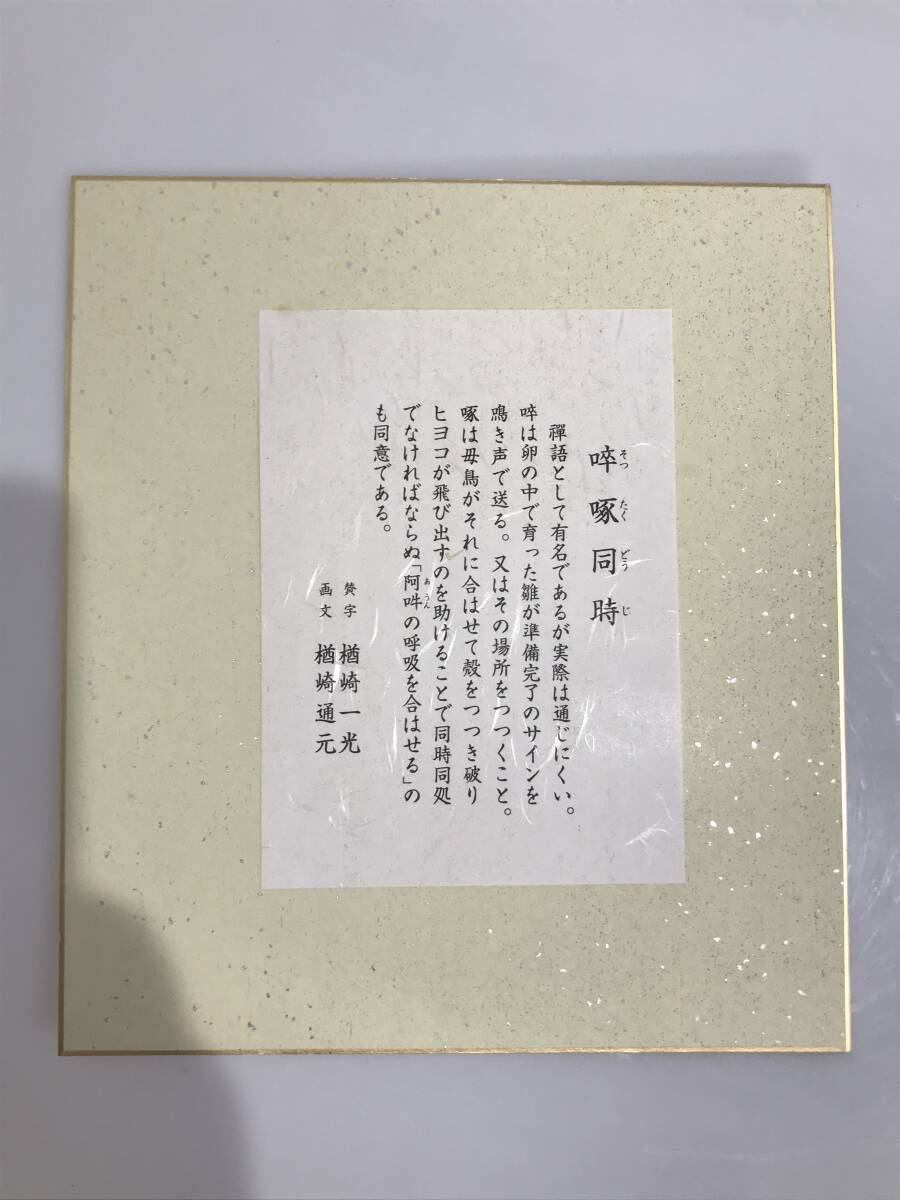 啐啄同時
そつたくどうじ
禪語として有名であるが実際は通じにくい。
啐は卵の中で育った雛が準備完了のサインを
鳴き声で送る。又はその場所をつつくこと。
啄は母鳥がそれに合はせて殻をつつき破り
ヒヨコが飛び出すのを助けることで同時同処
でなければならぬ「阿吽の呼吸を合はせる」の
あうん
も同意である。
賛字 楢崎一光
画文 楢崎通元